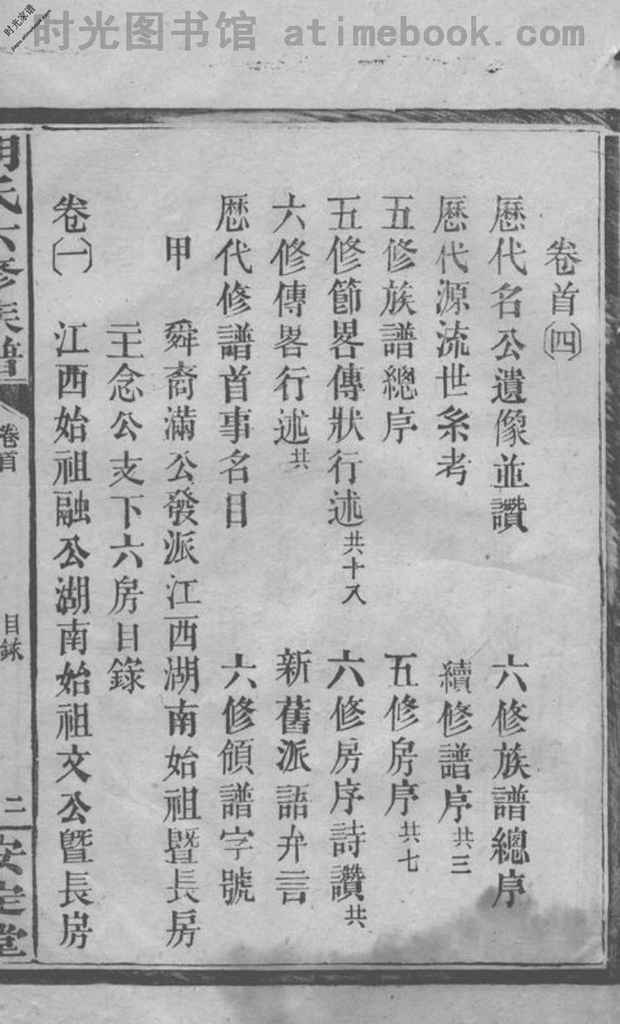 时光图书馆 atimebook.com
时光家谱
卷首㈣
歷代名公遺像並讚 六修族譜總序
歷代源流世系考 續修譜序共三
五修族譜總序 五修房序共七
五修節畧傳狀行述共十八 六修房序詩讚共
六修傳畧行述共 新舊派語弁言
歷代修譜首事名目 六修領譜字號
甲 舜裔滿公發派江西湖南始祖暨長房
二王念公支下六房目錄
卷㈠ 江西始祖融公湖南始祖文公暨長房
胡氏六修族譜
卷首
目錄
二
安定堂